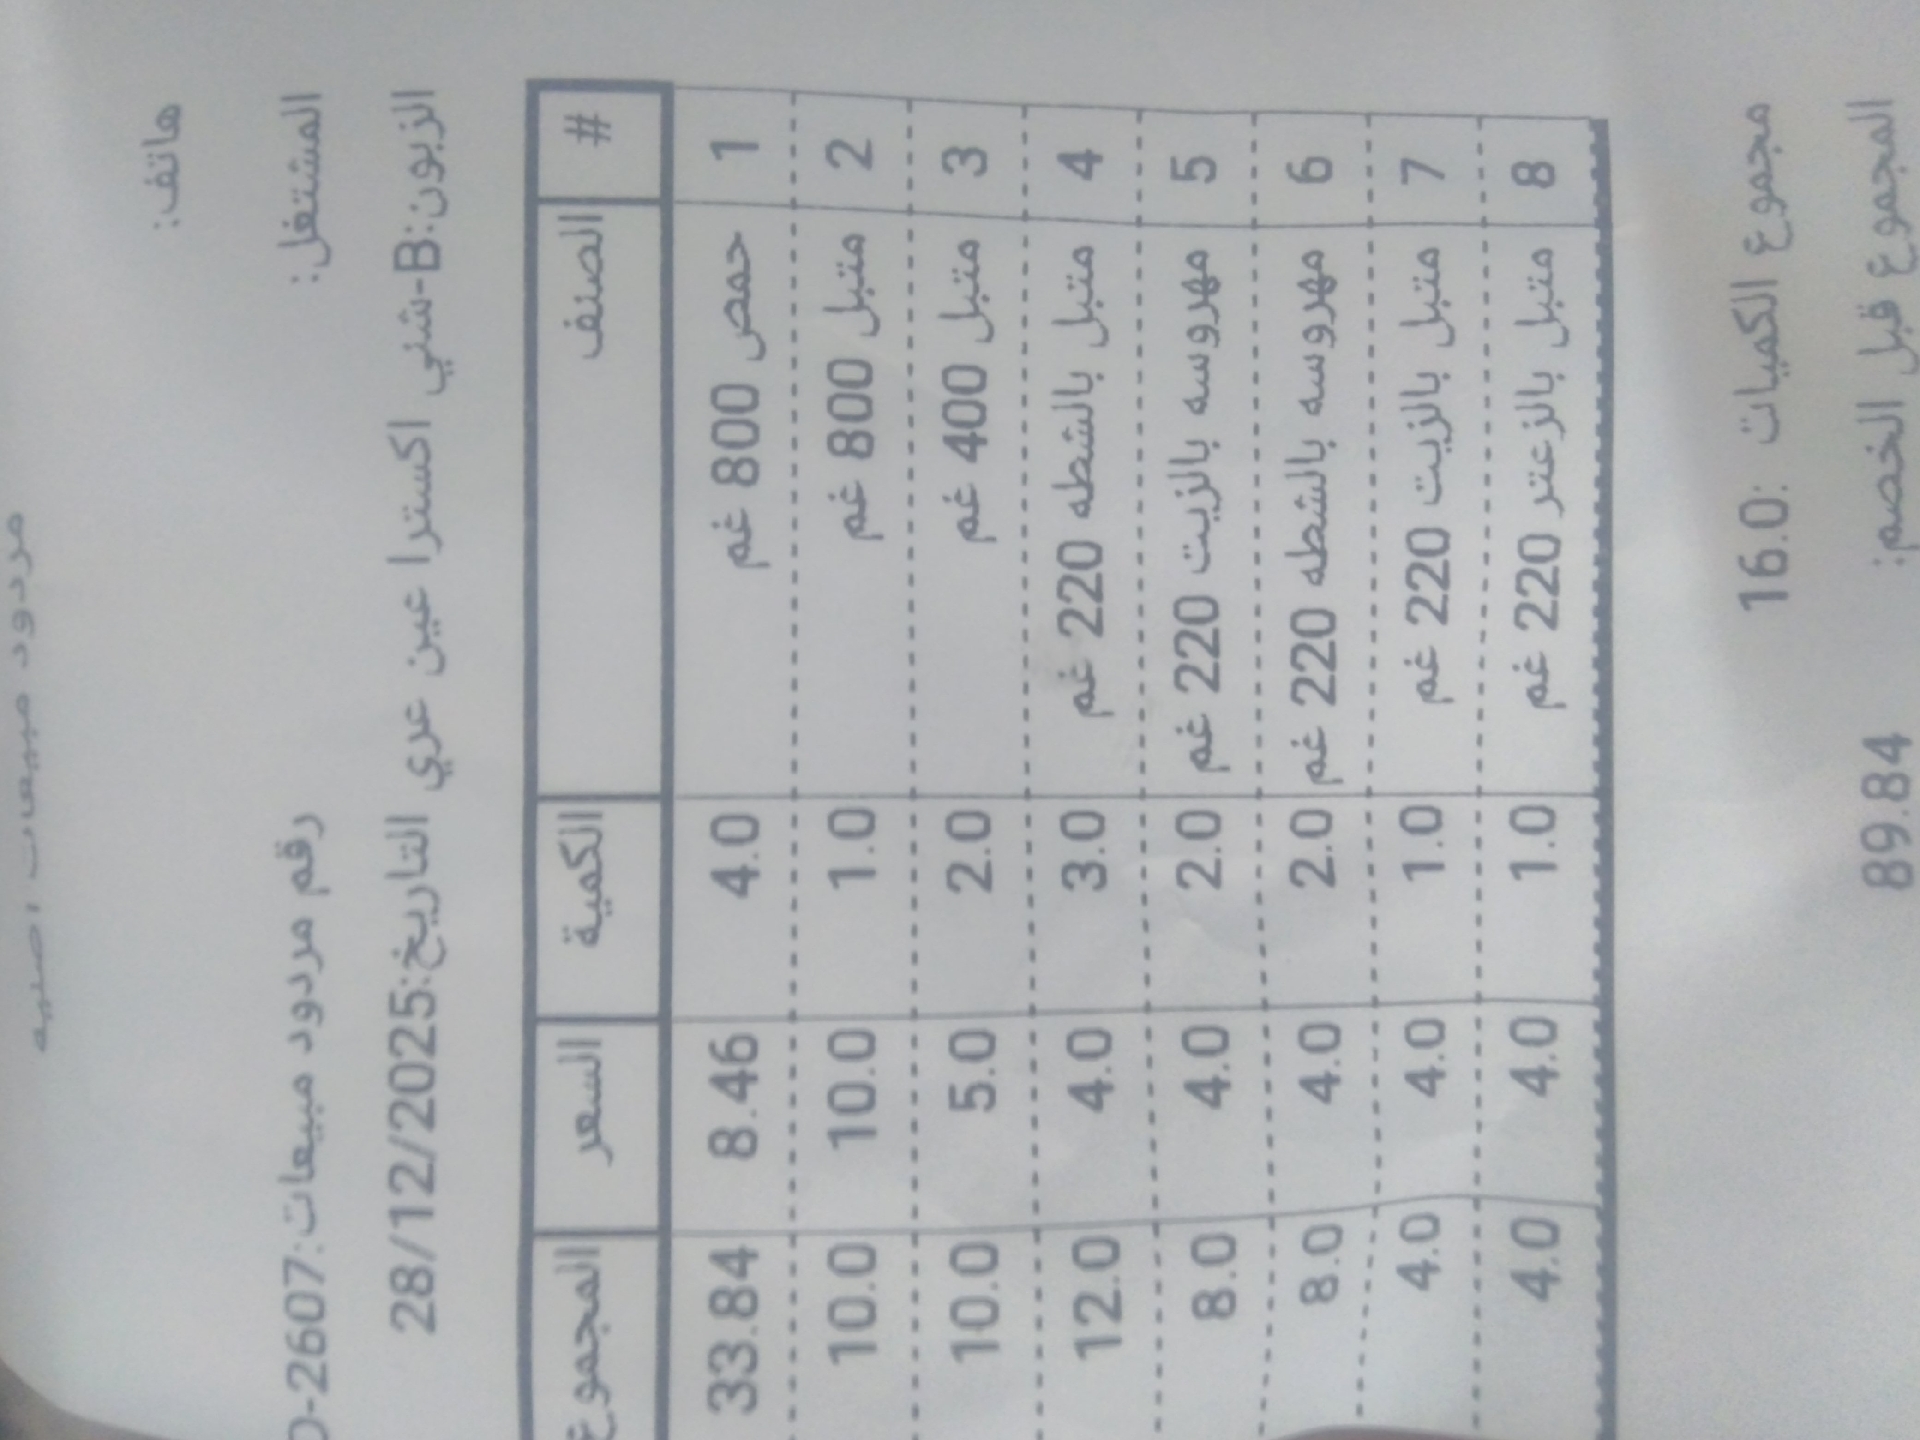 مردود مبيعات اصليه
هاتف:
المشتغل: رقم مردود مبيعات:2607-
الزبون:B-شني اكسترا عين عري التاريخ:28/12/2025
# الصنف الكمية السعر المجموع
1 حمص 800 غم 4.0 8.46 33.84
2 متبل 800 غم 1.0 10.0 10.0
3 متبل 400 غم 2.0 5.0 10.0
4 متبل بالشطه 220 غم 3.0 4.0 12.0
5 مهروسه بالزيت 220 غم 2.0 4.0 8.0
6 مهروسه بالشطه 220 غم 2.0 4.0 8.0
7 متبل بالزيت 220 غم 1.0 4.0 4.0
8 متبل بالزعتر 220 غم 1.0 4.0 4.0
مجموع الكميات :16.0
المجموع قبل الخصم: 89.84